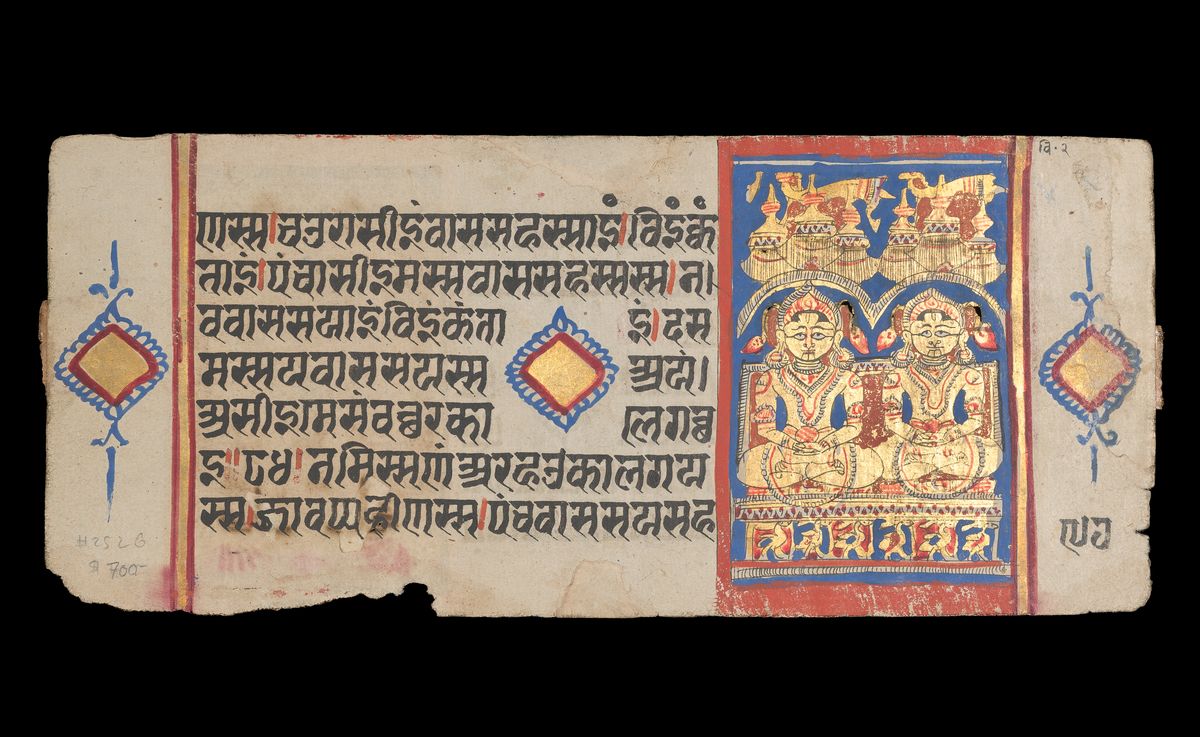 चि.२
णस्स।चउरासीइंवाससहस्साइं।विइंक्कं
ताइं।पंचासीइमस्सवाससहस्सस्स।न।
ववाससयाइंविइंकंता इं।दस
मस्सयवाससयस्स अयं।
असीइमसंवच्छरका लेगच्छ
इ॥८४।नमिस्सणंअरहउकालगया
स्स।जावप्पहीणस्स।पंचवाससयसह
#2526
700-